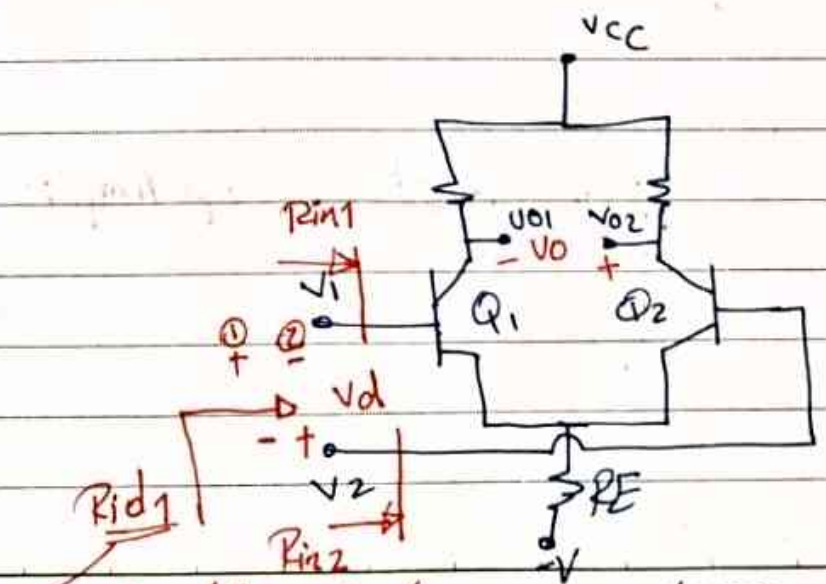 VCC
Rin1
VO1 VO2
- VO +
V1
Q1 Q2
① ②
+ -
Vd
- +
V2
Rid1
RE
Rin2
-V